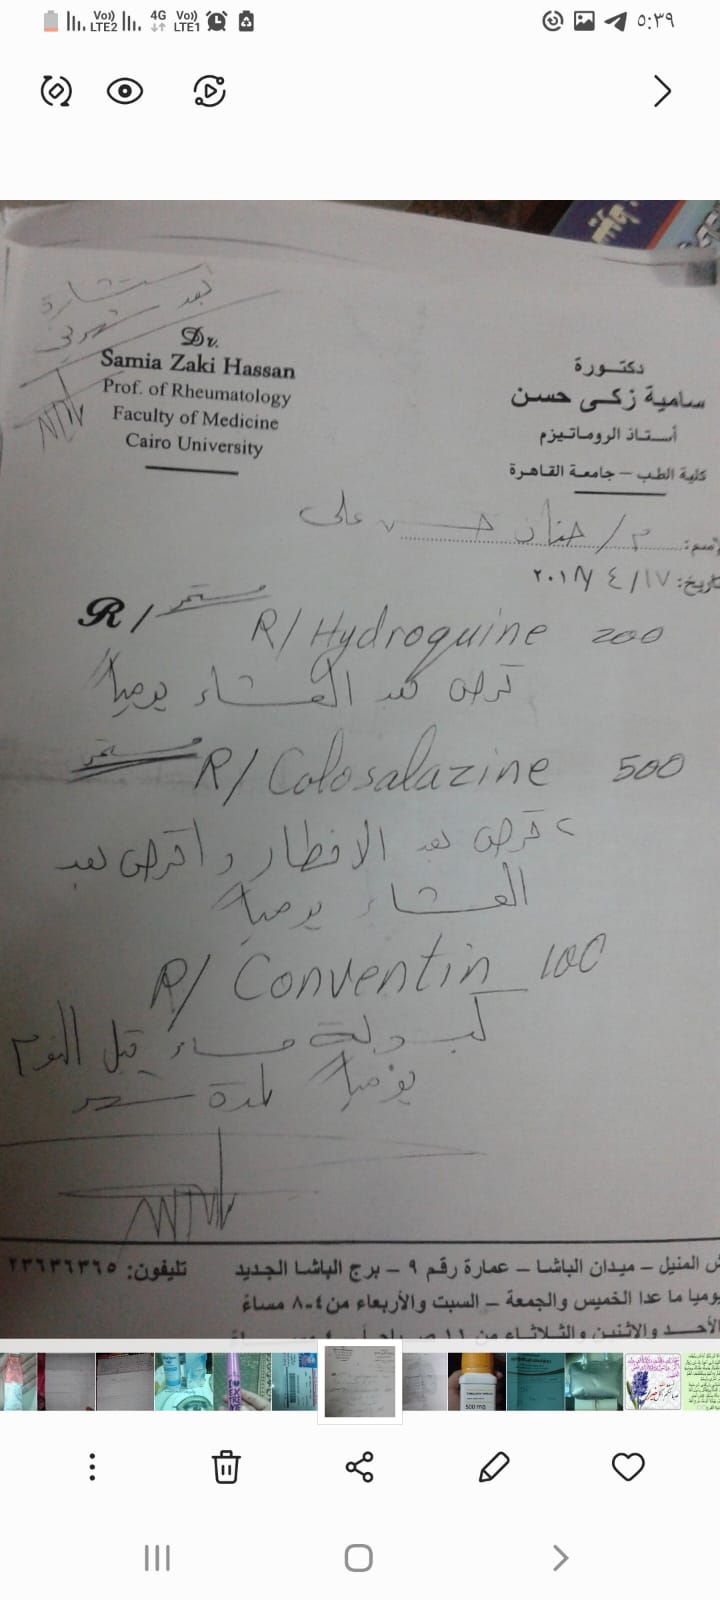 Vo)) LTE2 4G Vo)) LTE1 ٥:٣٩
استشارة
بعد شهرين
Dr.
Samia Zaki Hassan
Prof. of Rheumatology
Faculty of Medicine
Cairo University
دكتـورة
سامية زكـى حسـن
أستـاذ الروماتـيزم
كلية الطب - جامعة القاهـرة
م/ حنان حسن على
تاريخ: ١٧/٤/٢٠١٨
R/ مستمر
R/ Hydroquine 200
قرص بعد العشاء يومياً
مستمر R/ Colosalazine 500
٢ قرص بعد الافطار و١ قرص بعد
العشاء يومياً
R/ Conventin 100
كبسولة مساء قبل النوم
يومياً لمدة شهر
ش المنيل - ميدان الباشا - عمارة رقم ٩ - برج الباشا الجديد تليفون: ٢٣٦٣٦٣٦٥
يوميا ما عدا الخميس والجمعة - السبت والأربعاء من ٤-٨ مساءً
الأحـد والاثنين والثـلاثـاء من ١١
500 mg